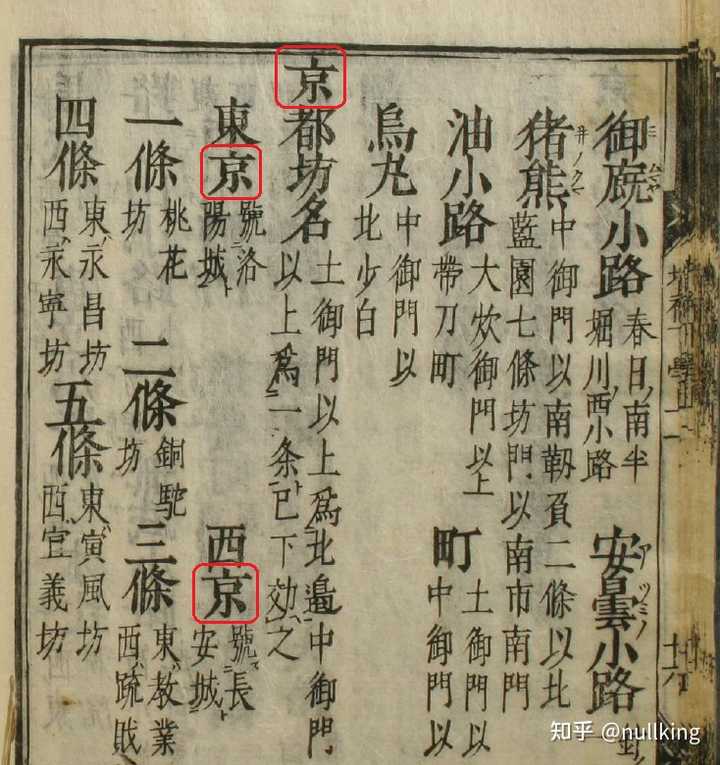 御厩小路 春日ノ南半堀川ノ西小路 安曇小路
猪熊 中御門以南靱負二條以北藍園七條坊門以南市南門
油小路 大炊御門以上帯刀町 町 土御門以中御門以
烏丸 中御門以北少白
京都坊名 土御門以上爲北邉中御門以上爲一条已下効之
東京 號洛陽城 西京 號長安城
一條 桃花坊 二條 銅駝坊 三條 東教業西
四條 東永昌坊西永寧坊 五條 東宣風坊西宣義坊
増補下學
十六
知乎 @nullking